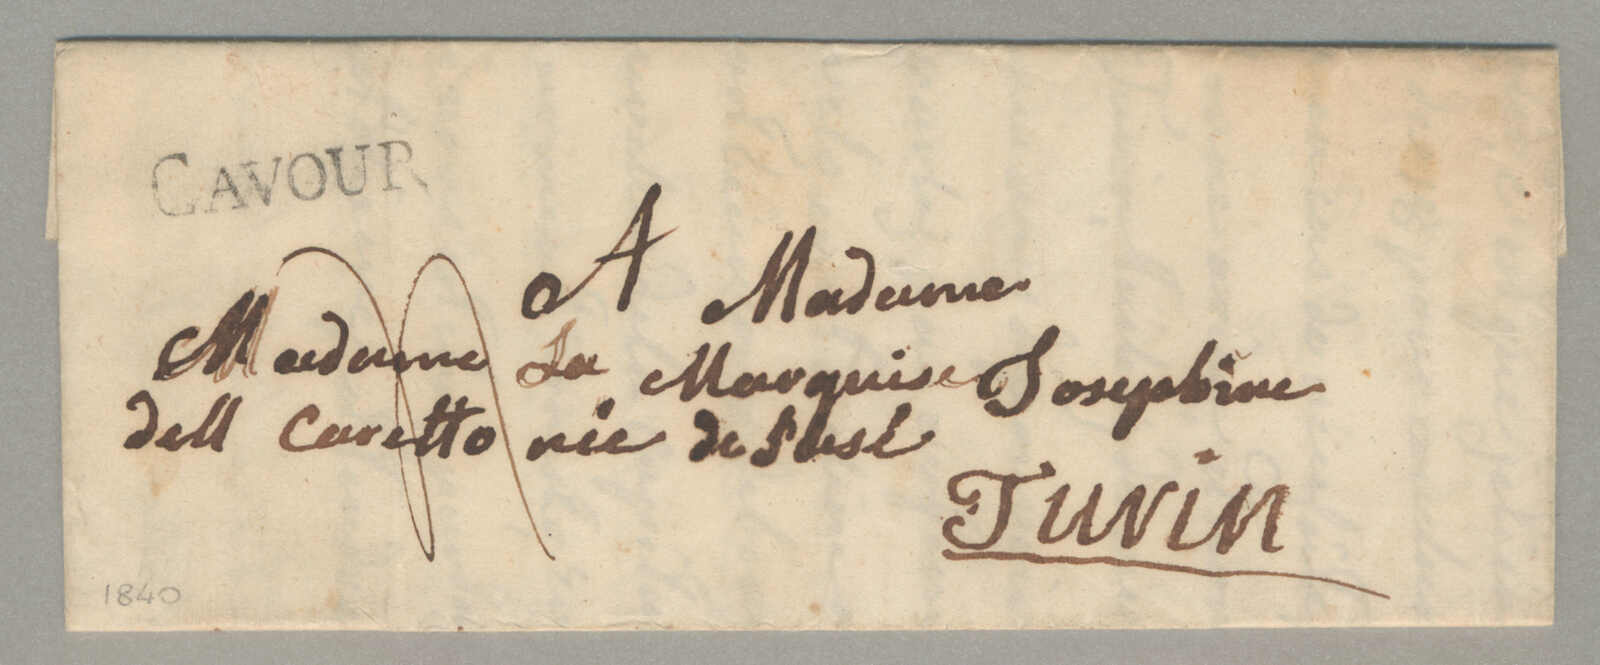 CAVOUR
A Madame
Madame La Marquise Josephine
dell Caretto née de
Turin
1840